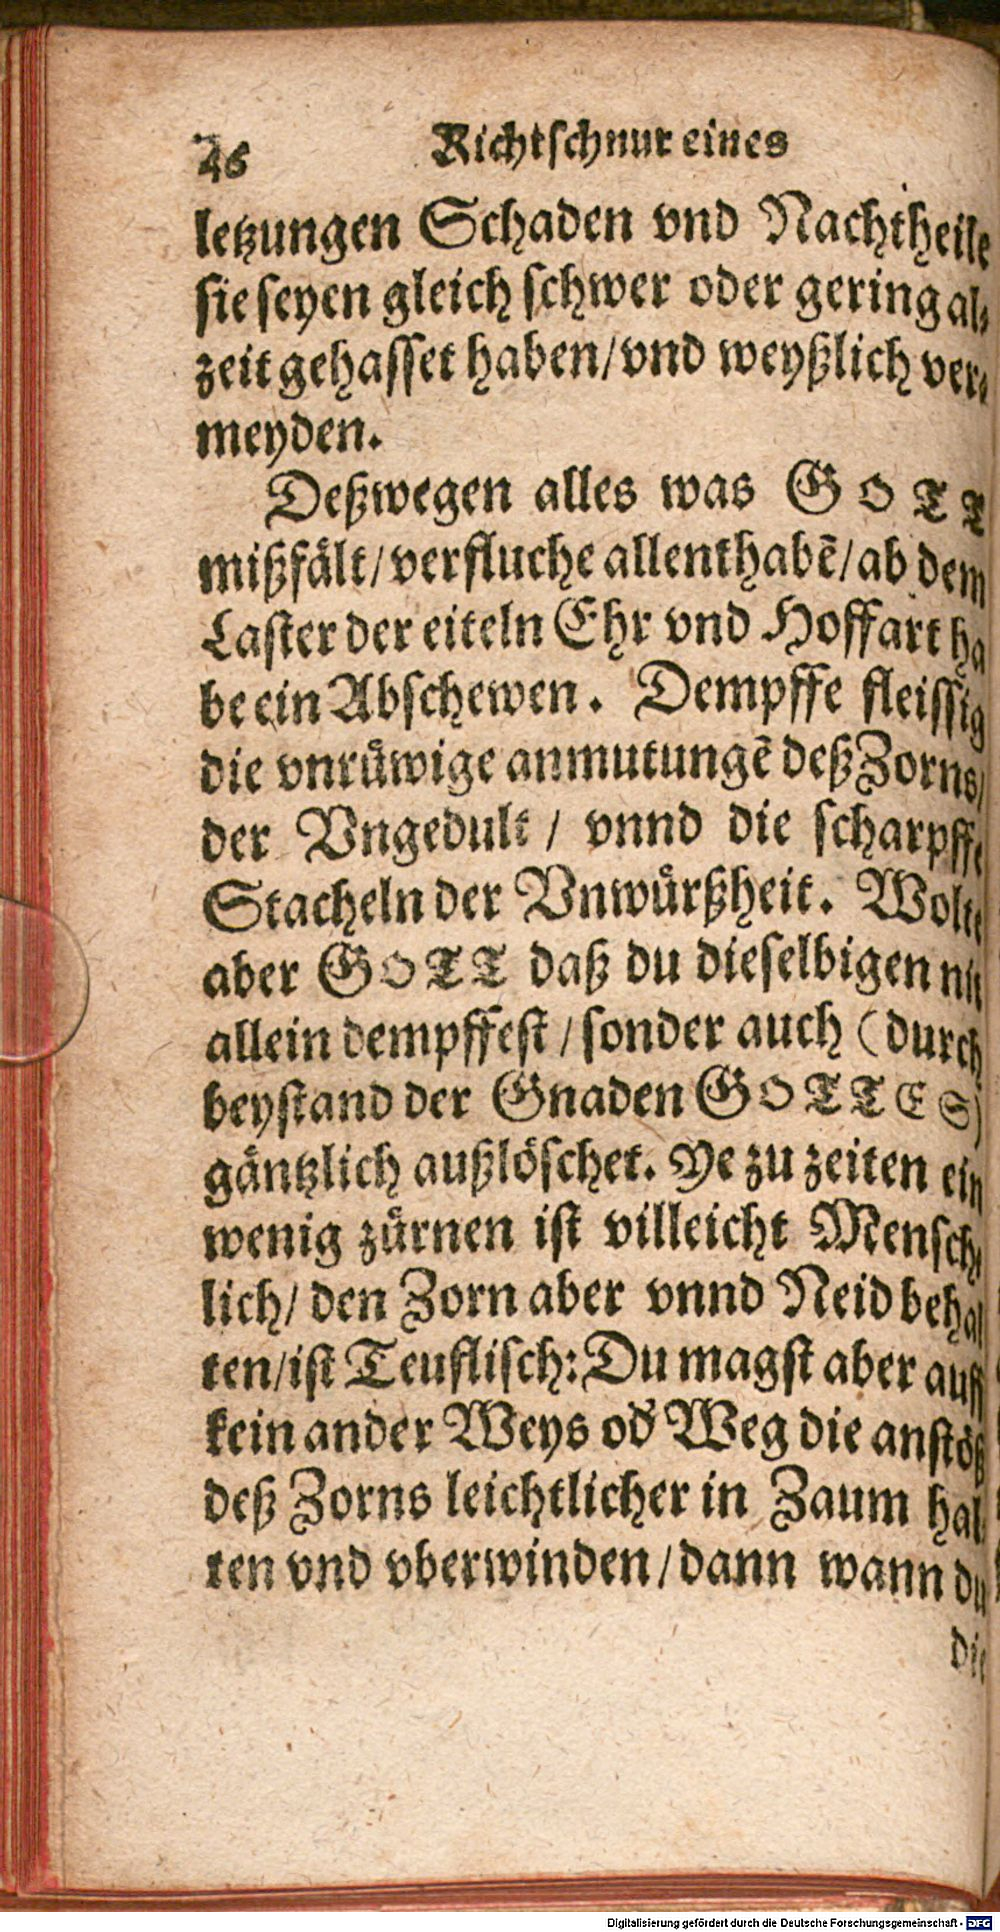 26 Richtschnur eines
letzungen Schaden vnd Nachtheile
sie seyen gleich schwer oder gering al⸗
zeit gehasset haben/ vnd weyßlich ver⸗
meyden.
Deßwegen alles was GOTT
mißfält/ verfluche allenthabẽ/ ab dem
Laster der eiteln Ehr vnd Hoffart ha
be ein Abschewen. Dempffe fleissig
die vnrüwige anmutungẽ deß Zorns/
der Vngedult/ vnnd die scharpffe
Stacheln der Vnwürßheit. Wolte
aber GOTT daß du dieselbigen nit
allein dempffest/ sonder auch (durch
beystand der Gnaden GOTTES)
gäntzlich außlöschet. Ye zu zeiten ein
wenig zürnen ist villeicht Mensch⸗
lich/ den Zorn aber vnnd Neid behal
ten/ ist Teuflisch: Du magst aber auff
kein ander Weys od' Weg die anstöß
deß Zorns leichtlicher in Zaum hal⸗
ten vnd vberwinden/ dann wann du
die
Digitalisierung gefördert durch die Deutsche Forschungsgemeinschaft - DFG